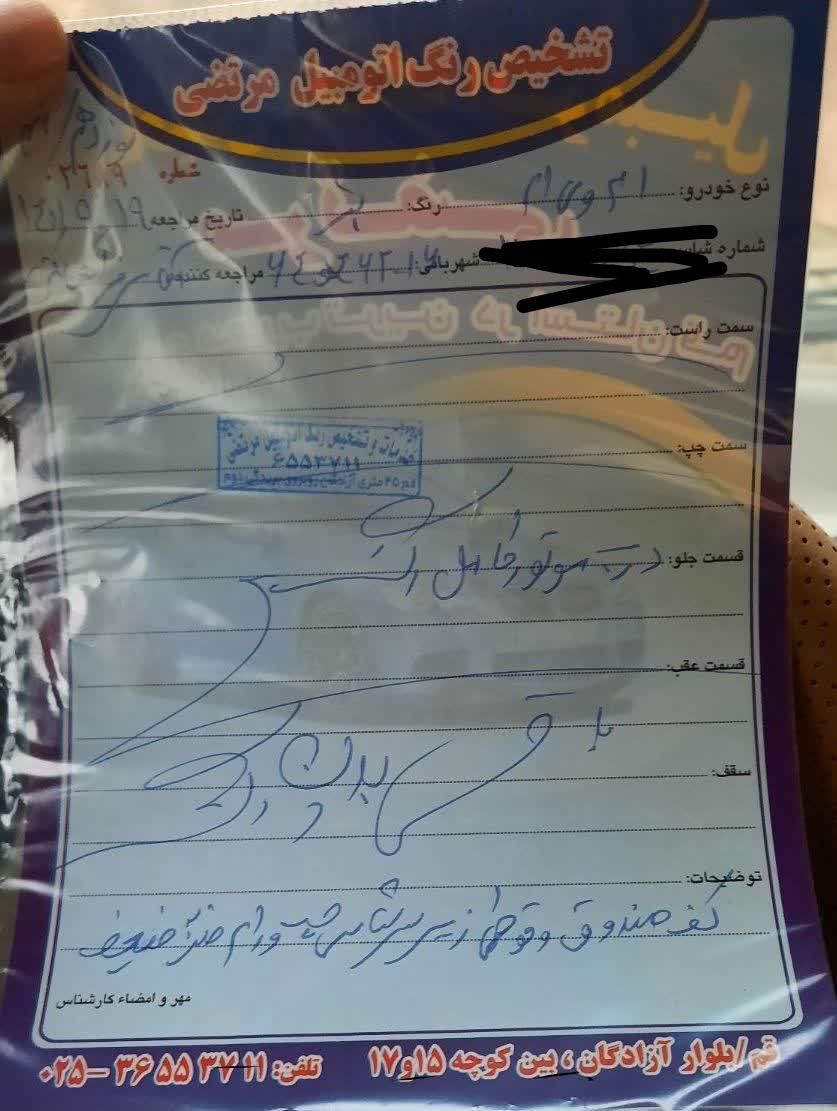 تشخیص رنگ اتومبیل مرتضی
شماره ۰۲۶۰۹
نوع خودرو: ام وی ام رنگ: تاریخ مراجعه
شماره شاس شهربانی: مراجعه کننده:
سمت راست:
خدمات و تشخیص رنگ اتومبیل مرتضی
۶۵۵۳۷۱۱
سمت چپ:
قسمت جلو: درب موتور کامل رنگ
قسمت عقب:
سقف:
باقی بدون رنگ
توضیحات:
کف صندوق و قوطی زیر سرشاسی چپ و رام ضربه ضعیف
مهر و امضاء کارشناس
قم/بلوار آزادگان، بین کوچه ۱۵و۱۷ تلفن: ۳۷۱۱ ۵۵ ۳۶ –۰۲۵